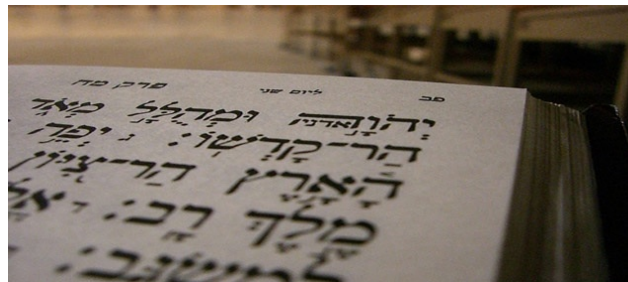 פב ליום שני פרק מח
יְהֹוָה אדני וּמְהֻלָּל מְאֹד
הַר־קָדְשׁוֹ: ג יְפֵה
הָאָרֶץ הַר־צִיּוֹן
מֶלֶךְ רָב: ד
לְמִשְׂגָּב: